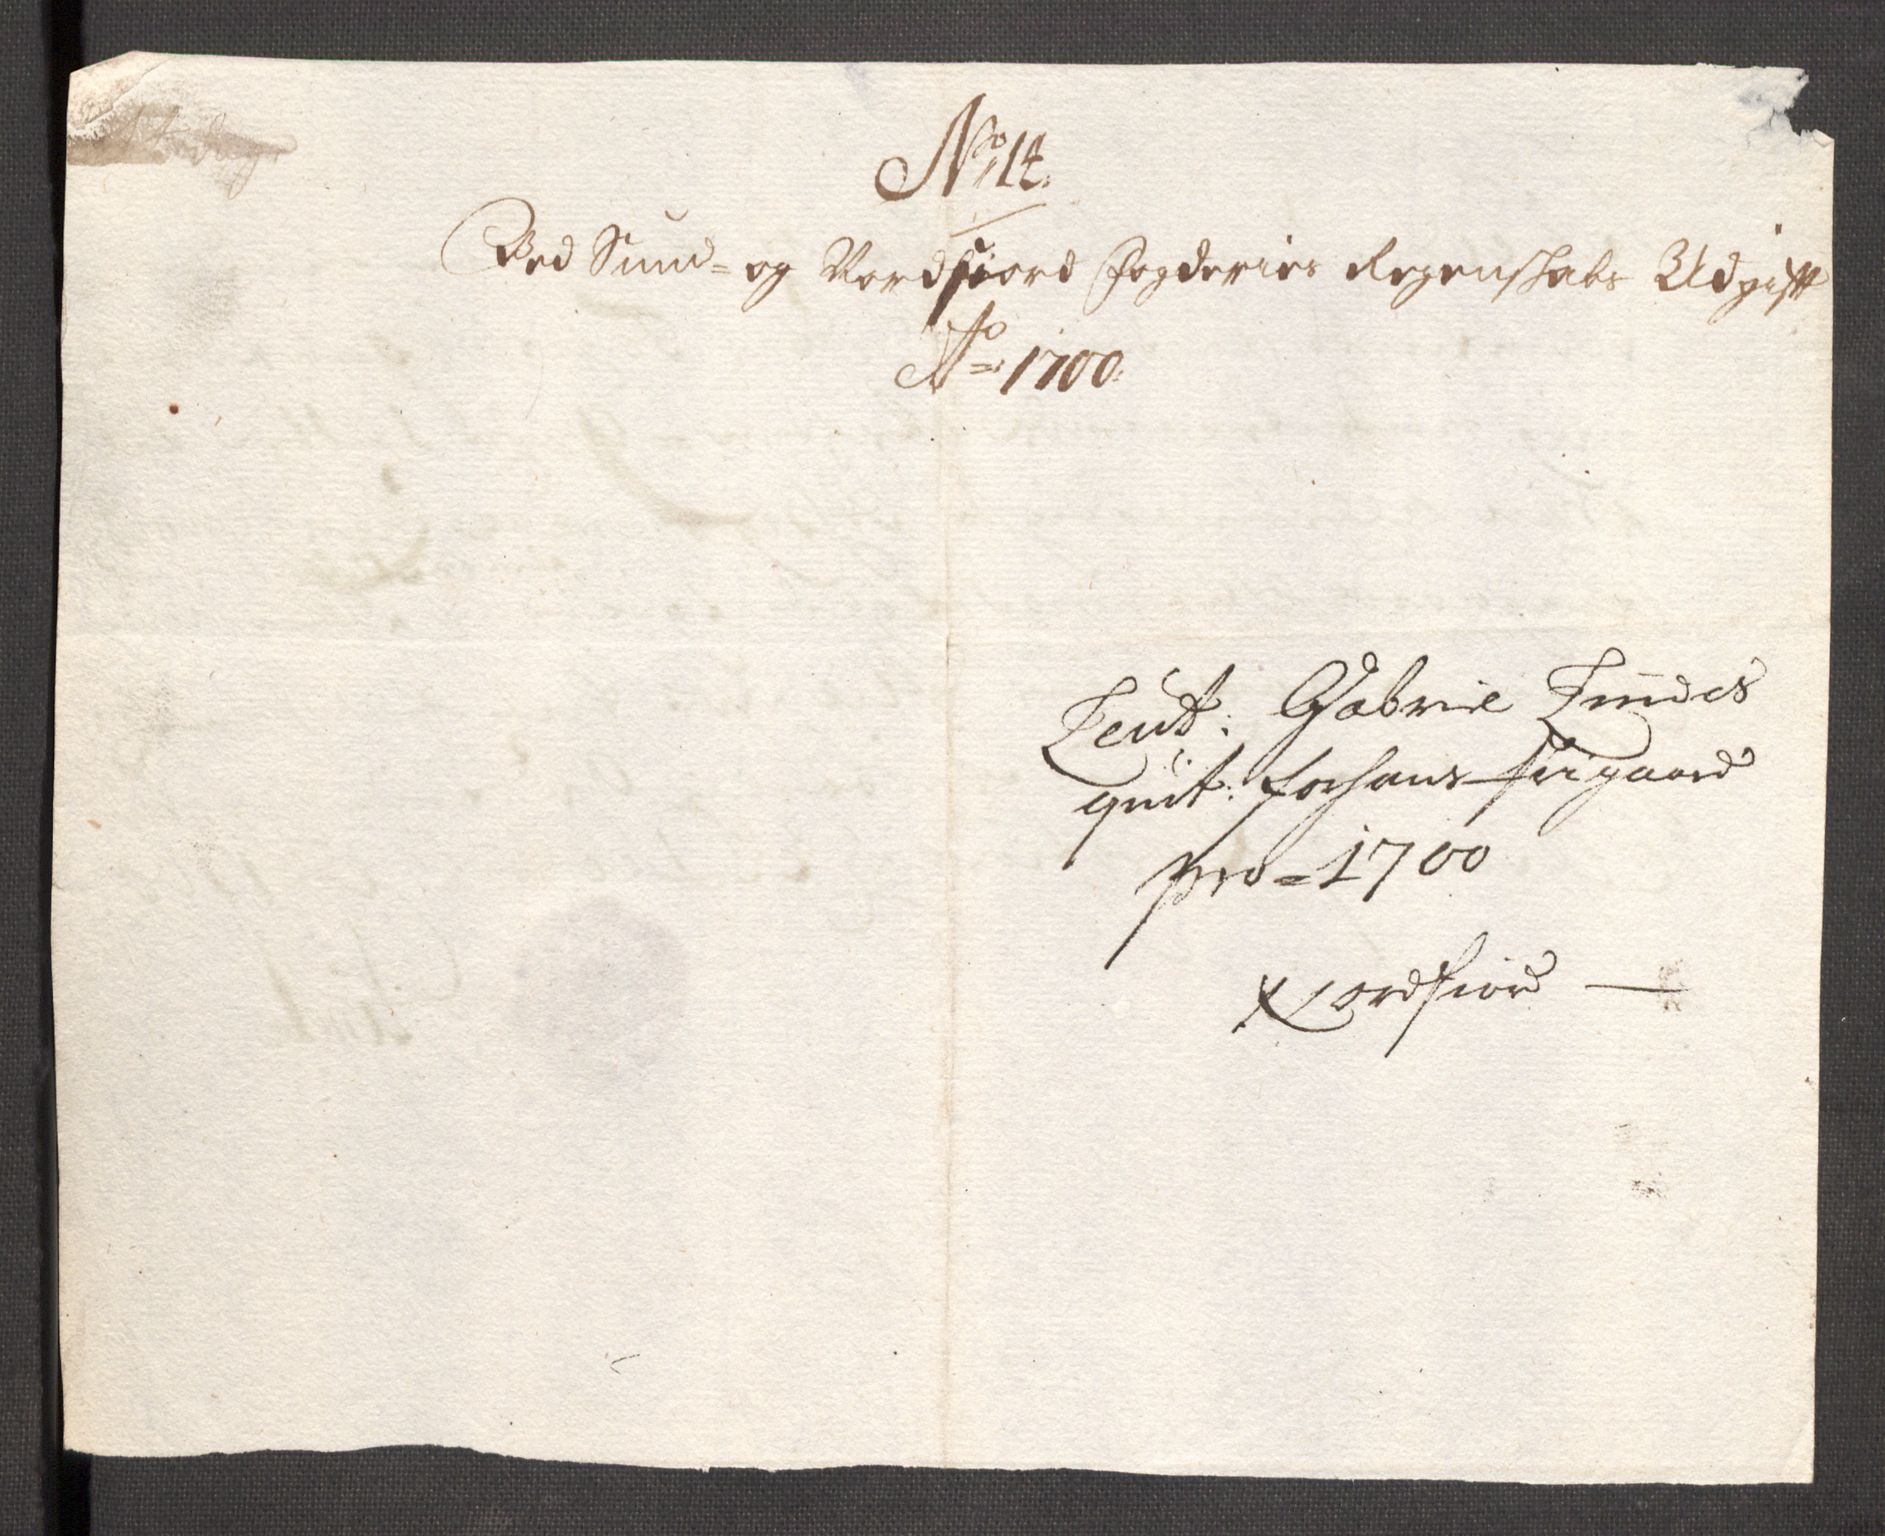 No 14.
Ved Sund- og Nordfiord Fogderies Regenskabs Udgifft
Ao 1700.
Leut: Gabriel Lundes
quit: for hans frigaard
pro = 1700
Nordfiord —